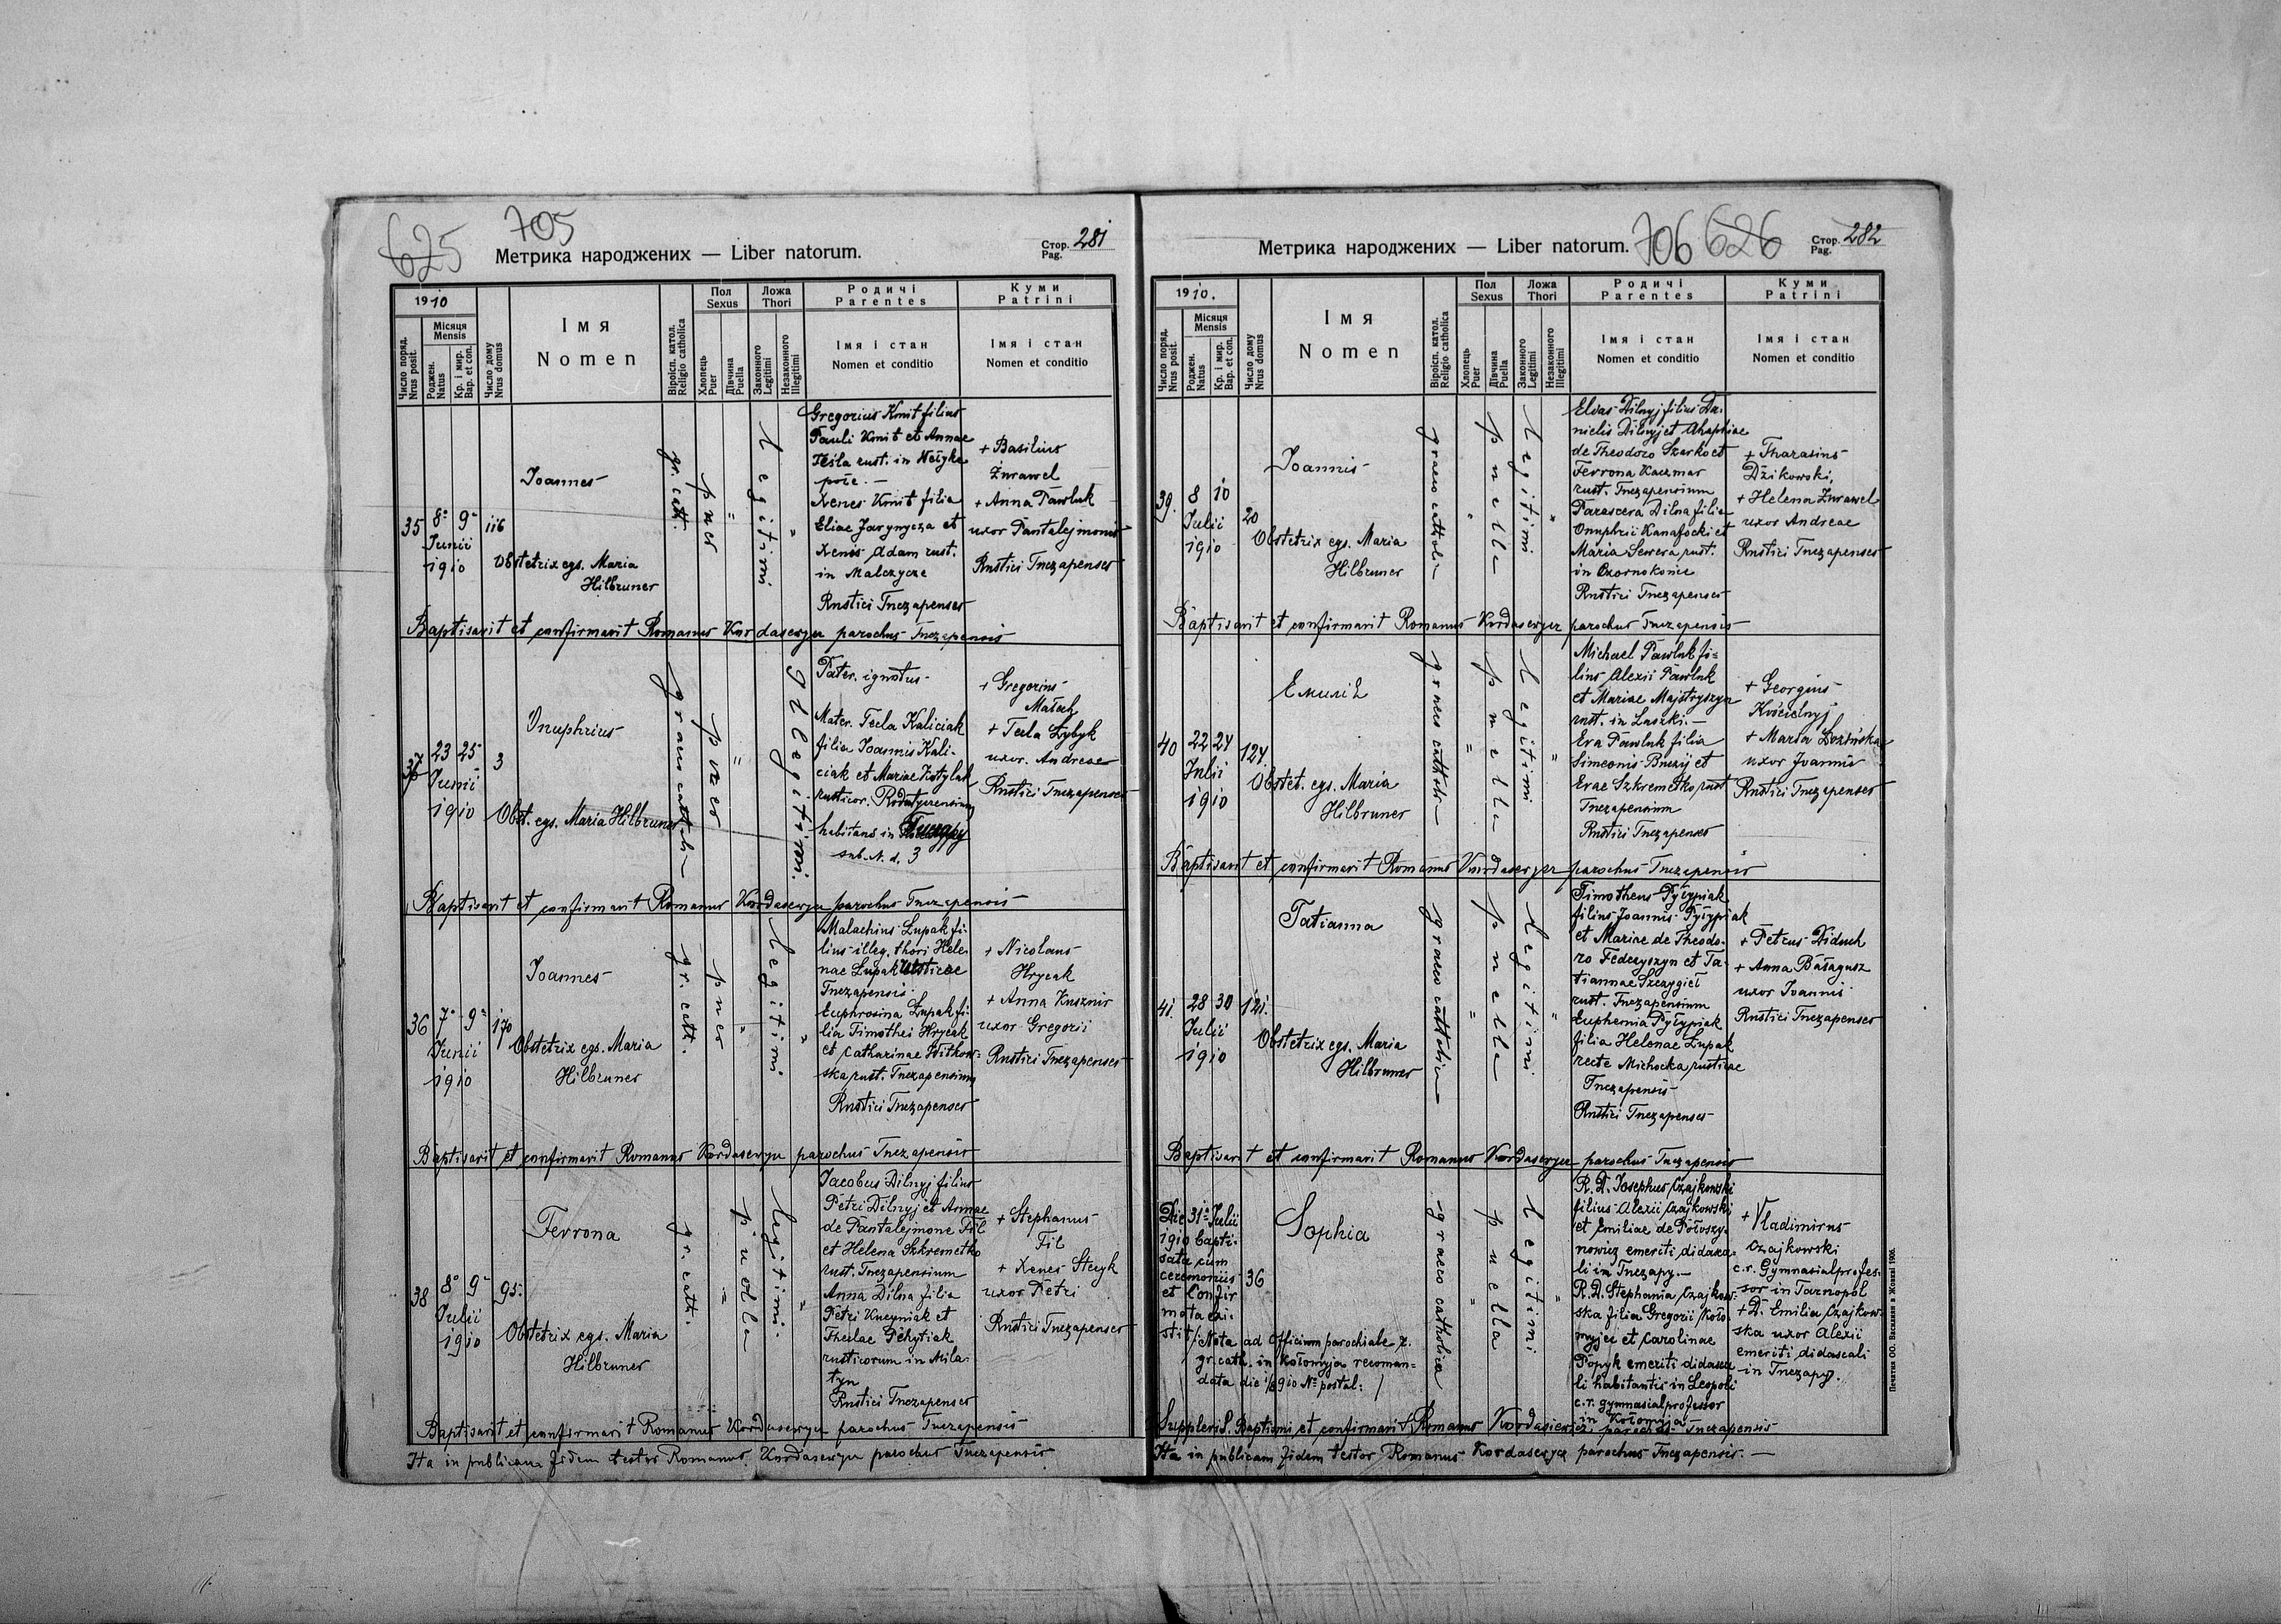 625
705
Метрика народжених — Liber natorum.
Стор. 281
Pag.
1910
Число поряд.
Nrus posit.
Місяця
Mensis
Роджен.
Natus
Кр. і мир.
Bap. et con.
Число дому
Nrus domus
Імя
Nomen
Віроісп. катол.
Religio catholica
Пол
Sexus
Хлопець
Puer
Дівчина
Puella
Ложа
Thori
Законного
Legitimi
Незаконного
Illegitimi
Родичі
Parentes
Імя і стан
Nomen et conditio
Куми
Patrini
Імя і стан
Nomen et conditio
35
8 9
Junii
1910
116
Joannes
Obstetrix egs. Maria
Hilbruner
gr. cath.
puer
legitimi
Gregorius Kmit filius
Pauli Kmit et Annae
Tesla rust. in
Xenes Kmit filia
Eliae Jarynycza et
Xenis Adam rust.
in Malczyce
Rustici Tuczapenses
+ Basilius
Żurawel
+ Anna Pawluk
uxor Pantalejmonis
Rustici Tuczapenses
Baptisavit et confirmavit Romanus Kordasewycz parochus Tuczapensis
37
23 25
Junii
1910
3
Onuphrius
Obst. egs. Maria Hilbruner
graeco cath.
puer
illegitimi
Pater. ignotus
Mater. Tecla Kaliciak
filia Joannis Kali-
ciak et Mariae Kotylak
rusticor. Rodatycensium
habitans in Tuczapy
sub. N. d. 3
+ Gregorius
+ Tecla Zybyk
uxor. Andreae
Rustici Tuczapenses
Baptisavit et confirmavit Romanus Kordasewycz parochus Tuczapensis
36
7 9
Junii
1910
170
Joannes
Obstetrix egs. Maria
Hilbruner
gr. cath.
puer
legitimi
Malachius Lupak fi-
lius illeg. thori Hele-
nae Lupak rusticae
Tuczapensis
Euphrosina Lupak fi-
lia Timothei Hrycak
et Catharinae Witkow-
ska rust. Tuczapensium
Rustici Tuczapenses
+ Nicolaus
Hrycak
+ Anna Kusznir
uxor Gregorii
Rustici Tuczapenses
Baptisavit et confirmavit Romanus Kordasewycz parochus Tuczapensis
38
8 9
Julii
1910
95.
Fevrona
Obstetrix egs. Maria
Hilbruner
gr. cath.
puella
legitimi
Jacobus Dilnyj filius
Petri Dilnyj et Annae
de Pantalejmone Fil
et Helena Szkremetko
rust. Tuczapensium
Anna Dilna filia
Petri Kucyniak et
Theclae Pehytiak
rusticorum in Mila-
tyn
Rustici Tuczapenses
+ Stephanus
Fil
+ Xenes Stecyk
uxor Petri
Rustici Tuczapenses
Baptisavit et confirmavit Romanus Kordasewycz parochus Tuczapensis
Ita in publicam fidem testor Romanus Kordasewycz parochus Tuczapensis
Метрика народжених — Liber natorum.
706 626
Стор. 282
Pag.
1910.
Число поряд.
Nrus posit.
Місяця
Mensis
Роджен.
Natus
Кр. і мир.
Bap. et con.
Число дому
Nrus domus
Імя
Nomen
Віроісп. катол.
Religio catholica
Пол
Sexus
Хлопець
Puer
Дівчина
Puella
Ложа
Thori
Законного
Legitimi
Незаконного
Illegitimi
Родичі
Parentes
Імя і стан
Nomen et conditio
Куми
Patrini
Імя і стан
Nomen et conditio
39.
8 10
Julii
1910
20
Joannis
Obstetrix egs. Maria
Hilbruner
graeco catholic
puella
legitimi
Elias Dilnyj filius Da-
nielis Dilnyj et Ahaphiae
de Theodoro Szarko et
Fevrona Kaczmar
rust. Tuczapensium
Parascera Dilna filia
Onuphrii Kanafocki et
Maria Severa rust.
in Czornokonce
Rustici Tuczapenses
+ Tharasius
Dżikowski,
+ Helena Żurawel
uxor Andreae
Rustici Tuczapenses
Baptisavit et confirmavit Romanus Kordasewycz parochus Tuczapensis
40
22 24
Julii
1910
124.
Емилія
Obstet. egs. Maria
Hilbruner
graeco cathol
puella
legitimi
Michael Pawluk fi-
lius Alexii Pawluk
et Mariae Majstryszyn
rust. in Laszki.—
Eva Pawluk filia
Simeonis Bucij et
Evae Szkremetko rust
Tuczapensium
Rustici Tuczapenses
+ Georgius
Kościelnyj
+ Maria Łozińska
uxor Joannis
Rustici Tuczapenses
Baptisavit et confirmavit Romanus Kordasewycz parochus Tuczapensis
41.
28 30
Julii
1910
121.
Tatianna
Obstetrix egs. Maria
Hilbruner
graeco catholic
puella
legitimi
Timotheus Pyłypiak
filius Joannis Pyłypiak
et Mariae de Theodo-
ro Fedeczyszyn et Ta-
tiannae Szczygieł
rust. Tuczapensium
Euphemia Pyłypiak
filia Helenae Lupak
recte Michocka rusticae
Tuczapensis
Rustici Tuczapenses
+ Petrus Diduch
+ Anna Bałagusz
uxor Joannis
Rustici Tuczapenses
Baptisavit et confirmavit Romanus Kordasewycz parochus Tuczapensis
Die 31 Julii
1910 bapti-
sata cum
ceremoniis
et confir
mata exi-
stit
36
Sophia
/ Nota ad Officium parochiale r.
gr. cath. in Kołomyja recoman-
data die 1/8 910 No postal: /
graeco catholica
puella
legitimi
R. D. Josephus Czajkowski
filius Alexii Czajkowski
et Emiliae de Połoszy-
nowicz emeriti didasca-
li in Tuczapy.—
R. D. Stephania Czajkow-
ska filia Gregorii Koło-
myjec et Carolinae
Popyk emeriti didasca
li habitantis in Leopoli
c. r. gymnasialprofessor
in Kołomyja
+ Vladimirus
Czajkowski
c. r. Gymnasialprofes-
sor in Tarnopol
+ D. Emilia Czajkow-
ska uxor Alexii
emeriti didascali
in Tuczapy.
Supplevit S. Baptismi et confirmavit Romanus Kordasiewicz parochus Tuczapensis
Ita in publicam fidem testor Romanus Kordasewycz parochus Tuczapensis.—
Печатня ОО. Василиян в Жовкві 1906.